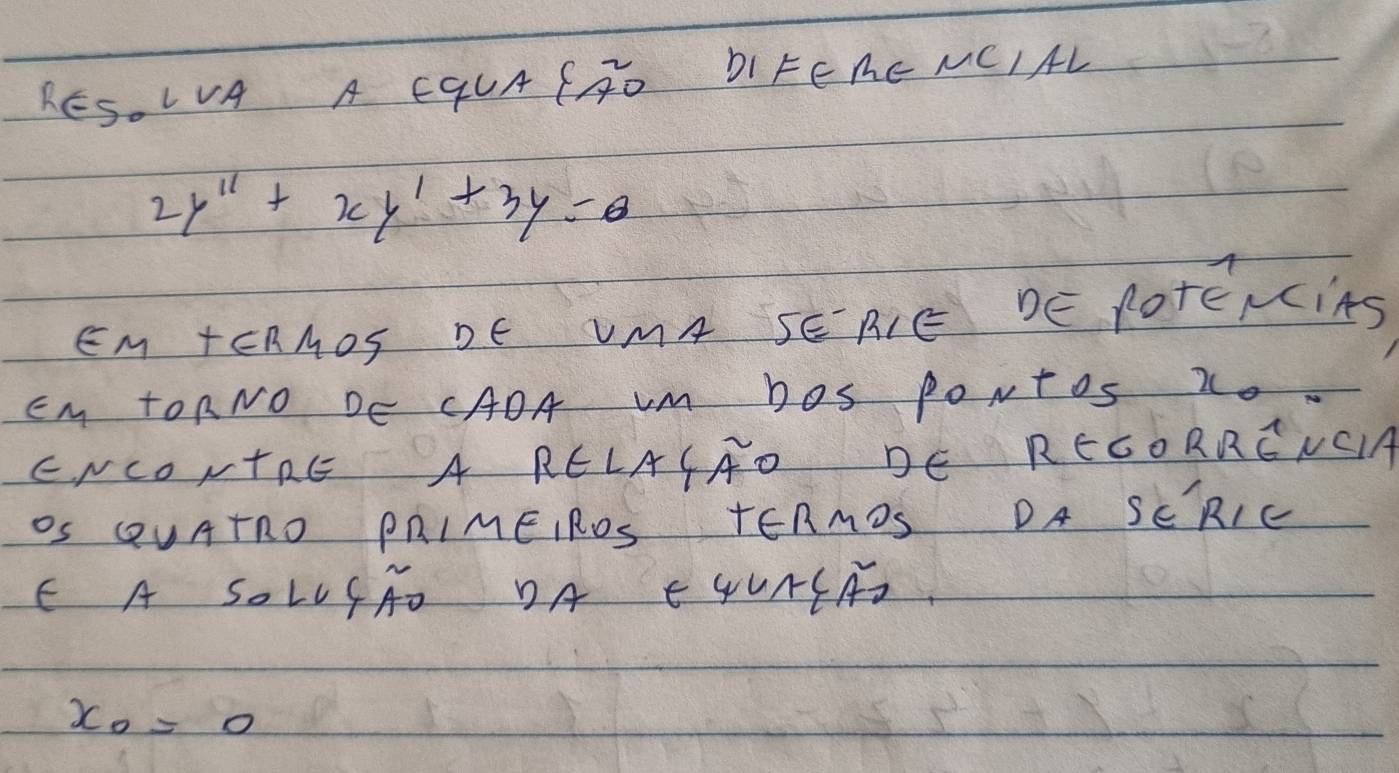 RESOLVA A EQUAÇÃO DIFERENCIAL
2y'' + xy' + 3y = 0
EM TERMOS DE UMA SÉRIE DE POTÊNCIAS,
EM TORNO DE CADA UM DOS PONTOS x₀.
ENCONTRE A RELAÇÃO DE RECORRÊNCIA
OS QUATRO PRIMEIROS TERMOS DA SÉRIE
E A SOLUÇÃO DA EQUAÇÃO.
x₀ = 0